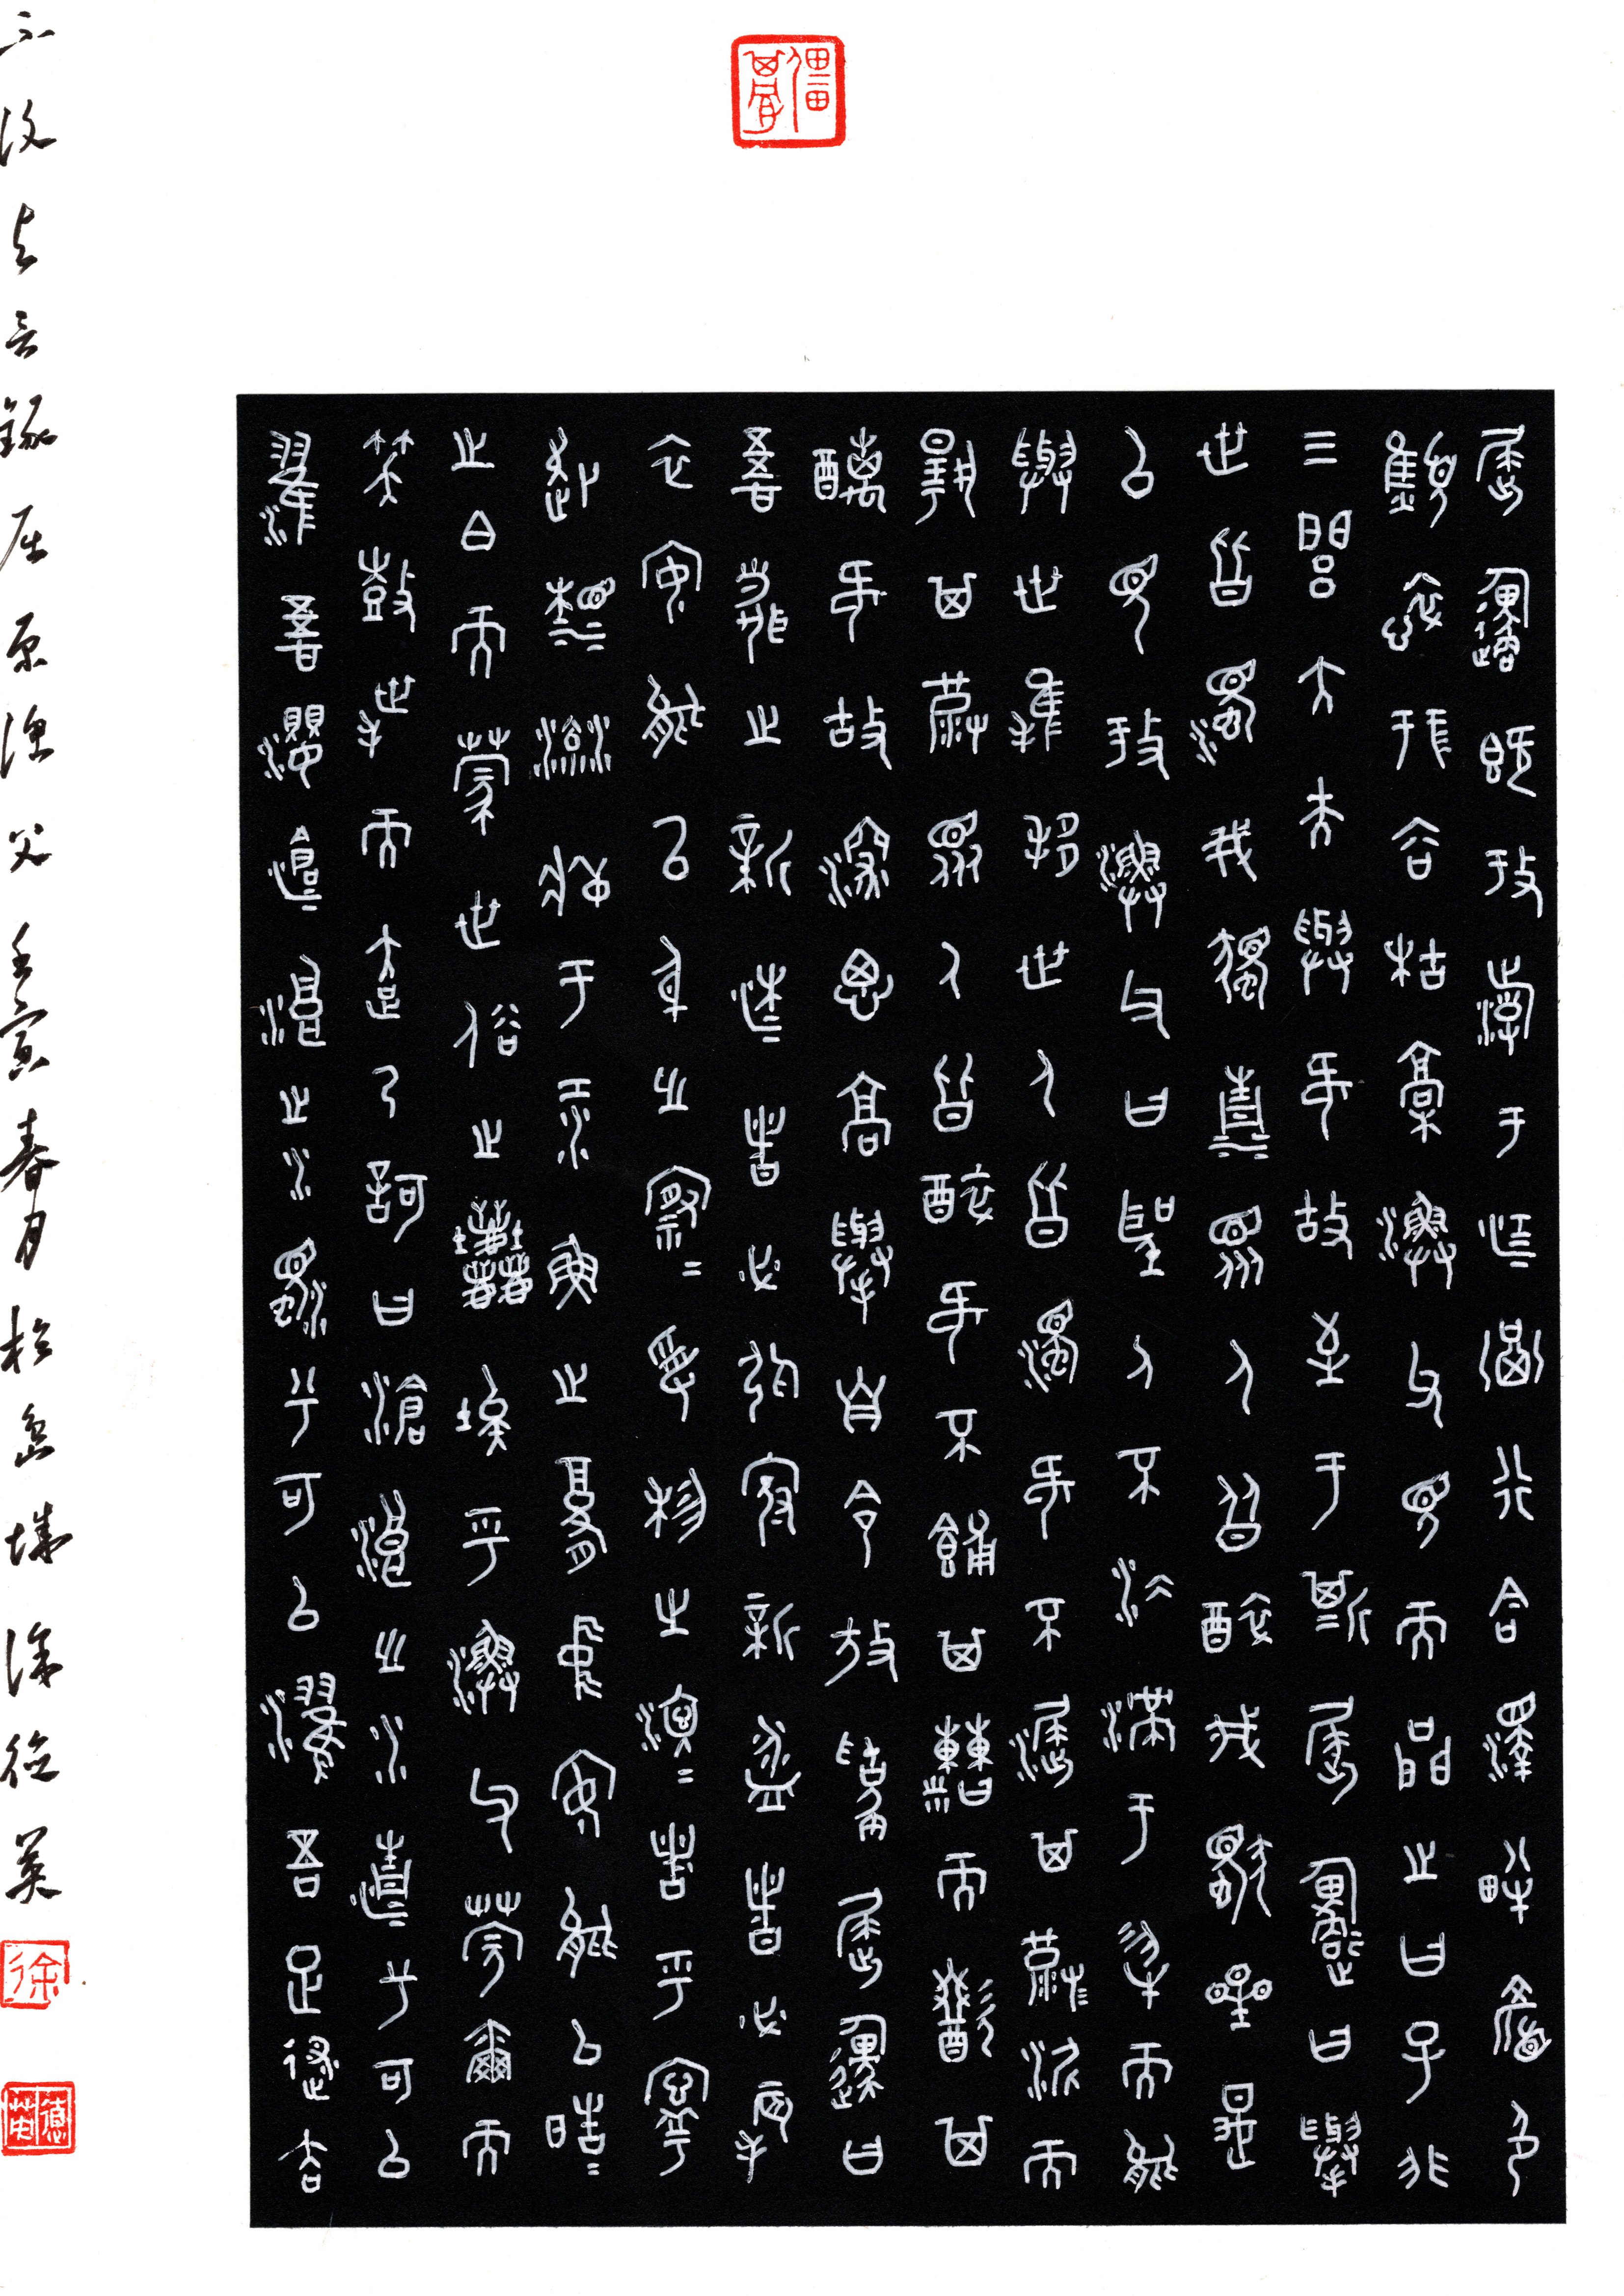 屈原既放游于江潭行吟澤畔顏色
憔悴形容枯槁漁父見而問之曰子非
三閭大夫與何故至于斯屈原曰舉
世皆濁我獨清眾人皆醉我獨醒是
以見放漁父曰聖人不凝滯于物而能
與世推移世人皆濁何不淈其泥而
揚其波眾人皆醉何不餔其糟而歠其
醨何故深思高舉自令放為屈原曰
吾聞之新沐者必彈冠新浴者必振
衣安能以身之察察受物之汶汶者乎寧
赴湘流葬于江魚之腹中安能以皓皓
之白而蒙世俗之塵埃乎漁父莞爾而
笑鼓枻而去乃歌曰滄浪之水清兮可以
濯吾纓滄浪之水濁兮可以濯吾足遂去
不復与言錄屈原漁父壬寅春月於島城徐德英
徐
德英